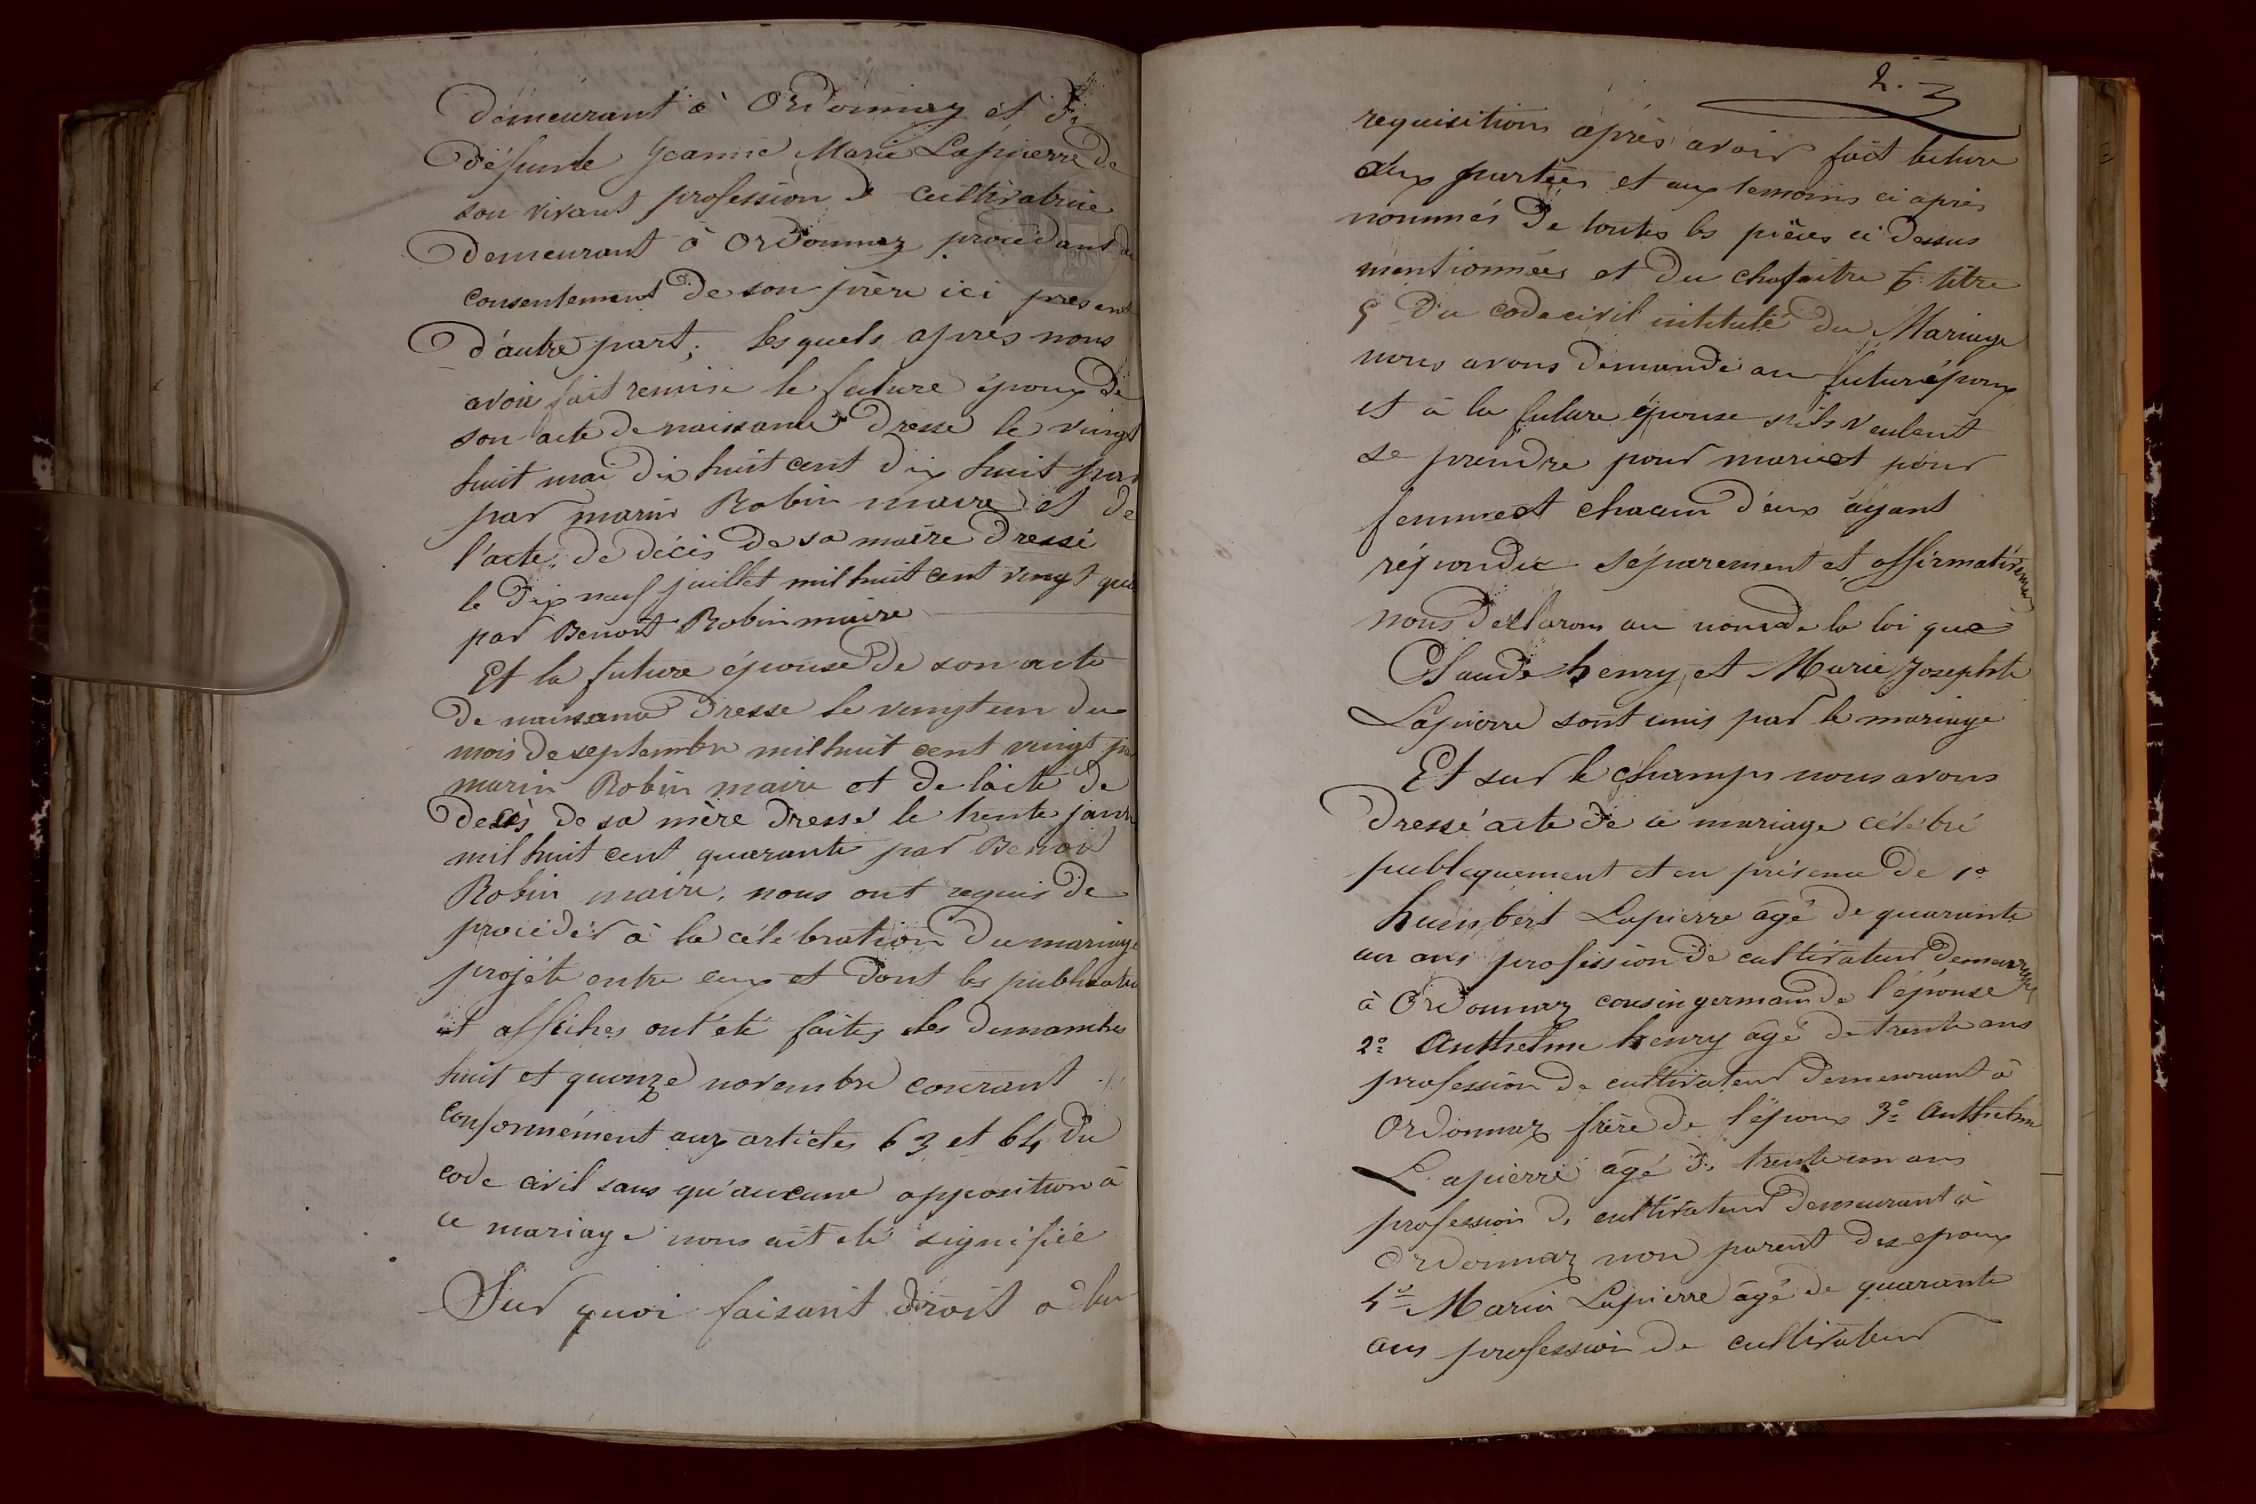 demeurant à Ordonnaz et de
défunte Jeanne Marie Lapierre de
son vivant profession de cultivatrice
demeurant à Ordonnaz procedant du
consentement de son père ici present
d'autre part; lesquels après nous
avoir fait remise le future époux de
son acte de naissance dresse le vingt
huit mai dix huit cent dix huit par
par marin Robin maire et de
l'acte de décès de sa mère dressé
le dix neuf juillet mil huit cent vingt
par Benoit Robin maire
Et la future épouse de son acte
de naissance dresse le vingt un du
mois de septembre mil huit cent vingt par
marin Robin maire et de l'acte de
decès de sa mère dressé le trente janv
mil huit cent quarante par Benoit
Robin maire, nous ont requis de
procéder à la célébration du mariage
projété entre eux et dont les publicatio
et affiches ont été faites les dimanches
huit et quinze novembre courant
conformément aux articles 63 et 64 du
code civil sans qu'aucune opposition à
ce mariage nous ait été signifiée
Sur quoi faisant droit à leur
2.
requisition après avoir fait lecture
aux parties et aux temoins ci après
nommés de toutes les pièces ci dessus
mentionnées et du chapitre 6 titre
5 du code civil intitulé du Mariage
nous avons demandé au futur époux
et à la future épouse s'ils veulent
se prendre pour mari et pour
femme et chacun d'eux ayant
répondu séparement et affirmativement
nous declarons au nom de la loi que
Claude henry et Marie Josephte
Lapierre sont unis par le mariage
Et sur le champs nous avons
dressé acte de ce mariage célébré
publiquement et en présence de 1º
humbert Lapierre âgé de quarante
un ans profession de cultivateur demeurant
à Ordonnaz cousin germain de l'épouse
2º Anthelme henry âgé de trente ans
profession de cultivateur demeurant à
Ordonnaz frère de l'époux 3º Anthelme
Lapierre âgé de trente un ans
profession de cultivateur demeurant à
Ordonnaz non parent des epoux
4º Marin Lapierre âgé de quarante
ans profession de cultivateur